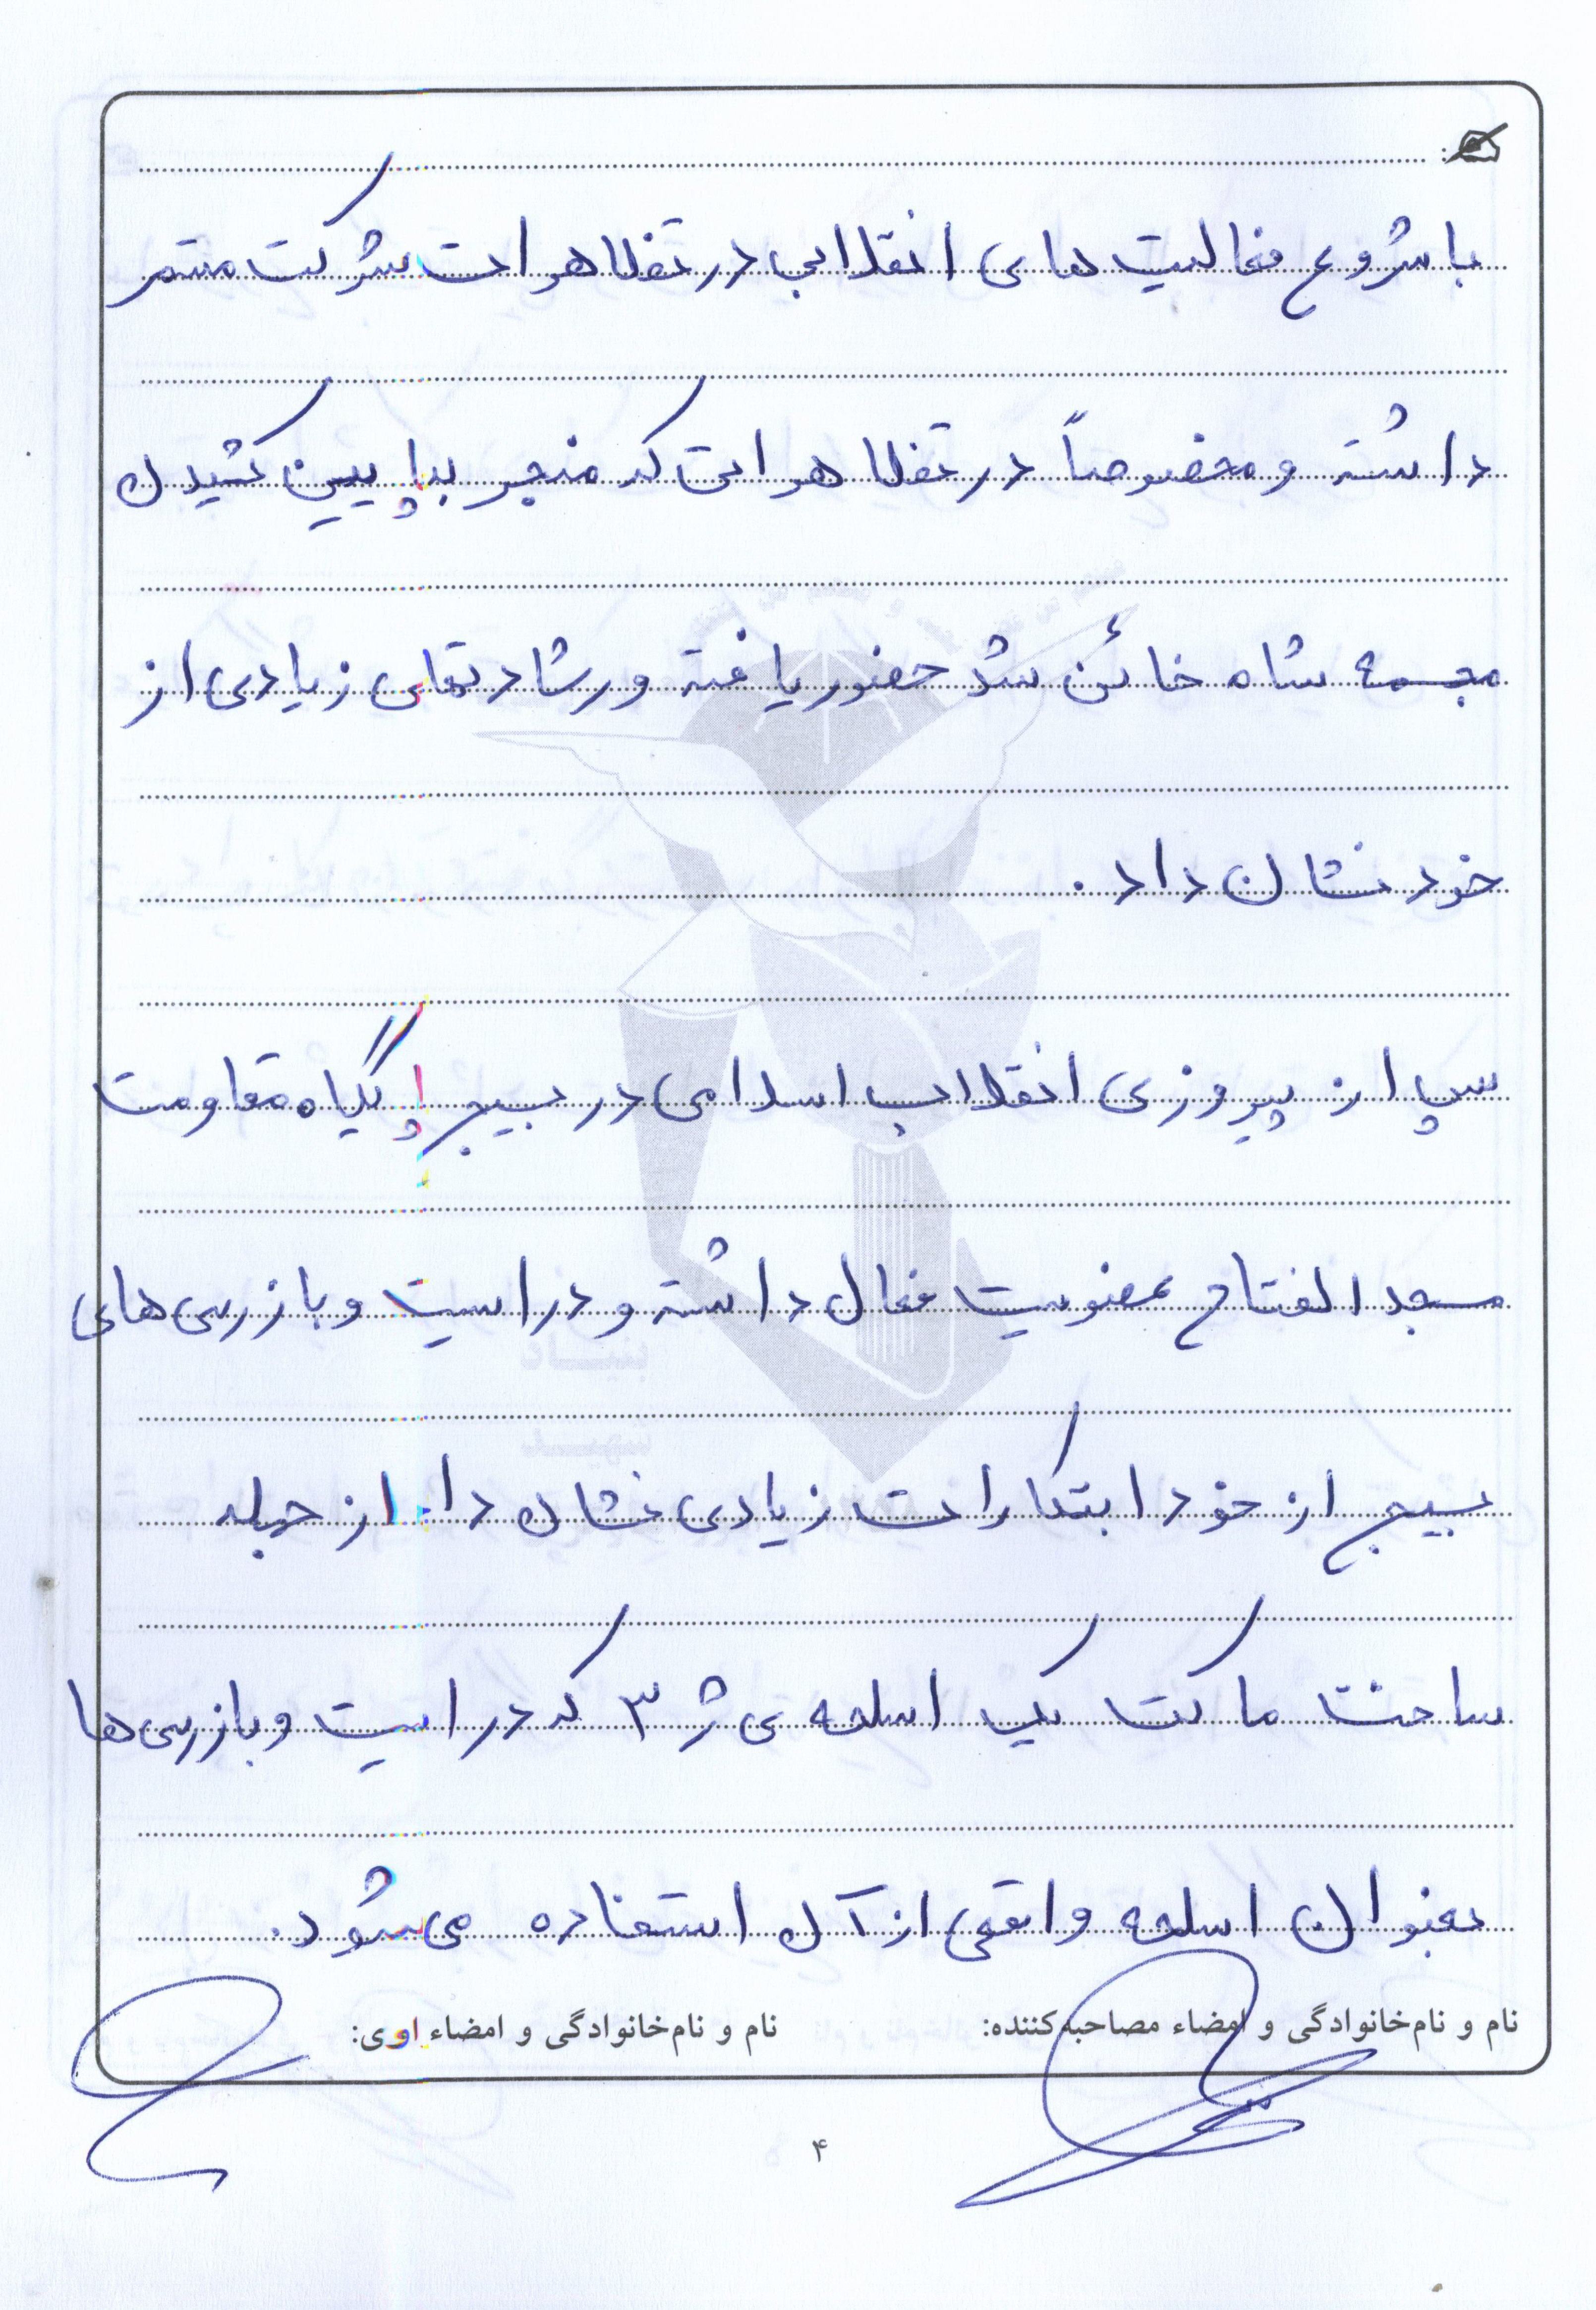 با شروع فعالیت های انقلابی در تظاهرات شرکت مستمر
داشته و مخصوصاً در تظاهراتی که منجر به پایین کشیدن
مجسمه شاه خائن شد حضور یافته و رشادتهای زیادی از
خود نشان داد.
سپس از پیروزی انقلاب اسلامی در بسیج پایگاه مقاومت
مسجد الفتاح عضویت فعال داشته و در ایست و بازرسی های
بسیج از خود ابتکارات زیادی نشان داد از جمله
ساخت ماکت یک اسلحه ی ژ ۳ که در ایست و بازرسی ها
بعنوان اسلحه واقعی از آن استفاده می شود.
نام و نام‌خانوادگی و امضاء مصاحبه‌کننده: نام و نام‌خانوادگی و امضاء راوی:
۴